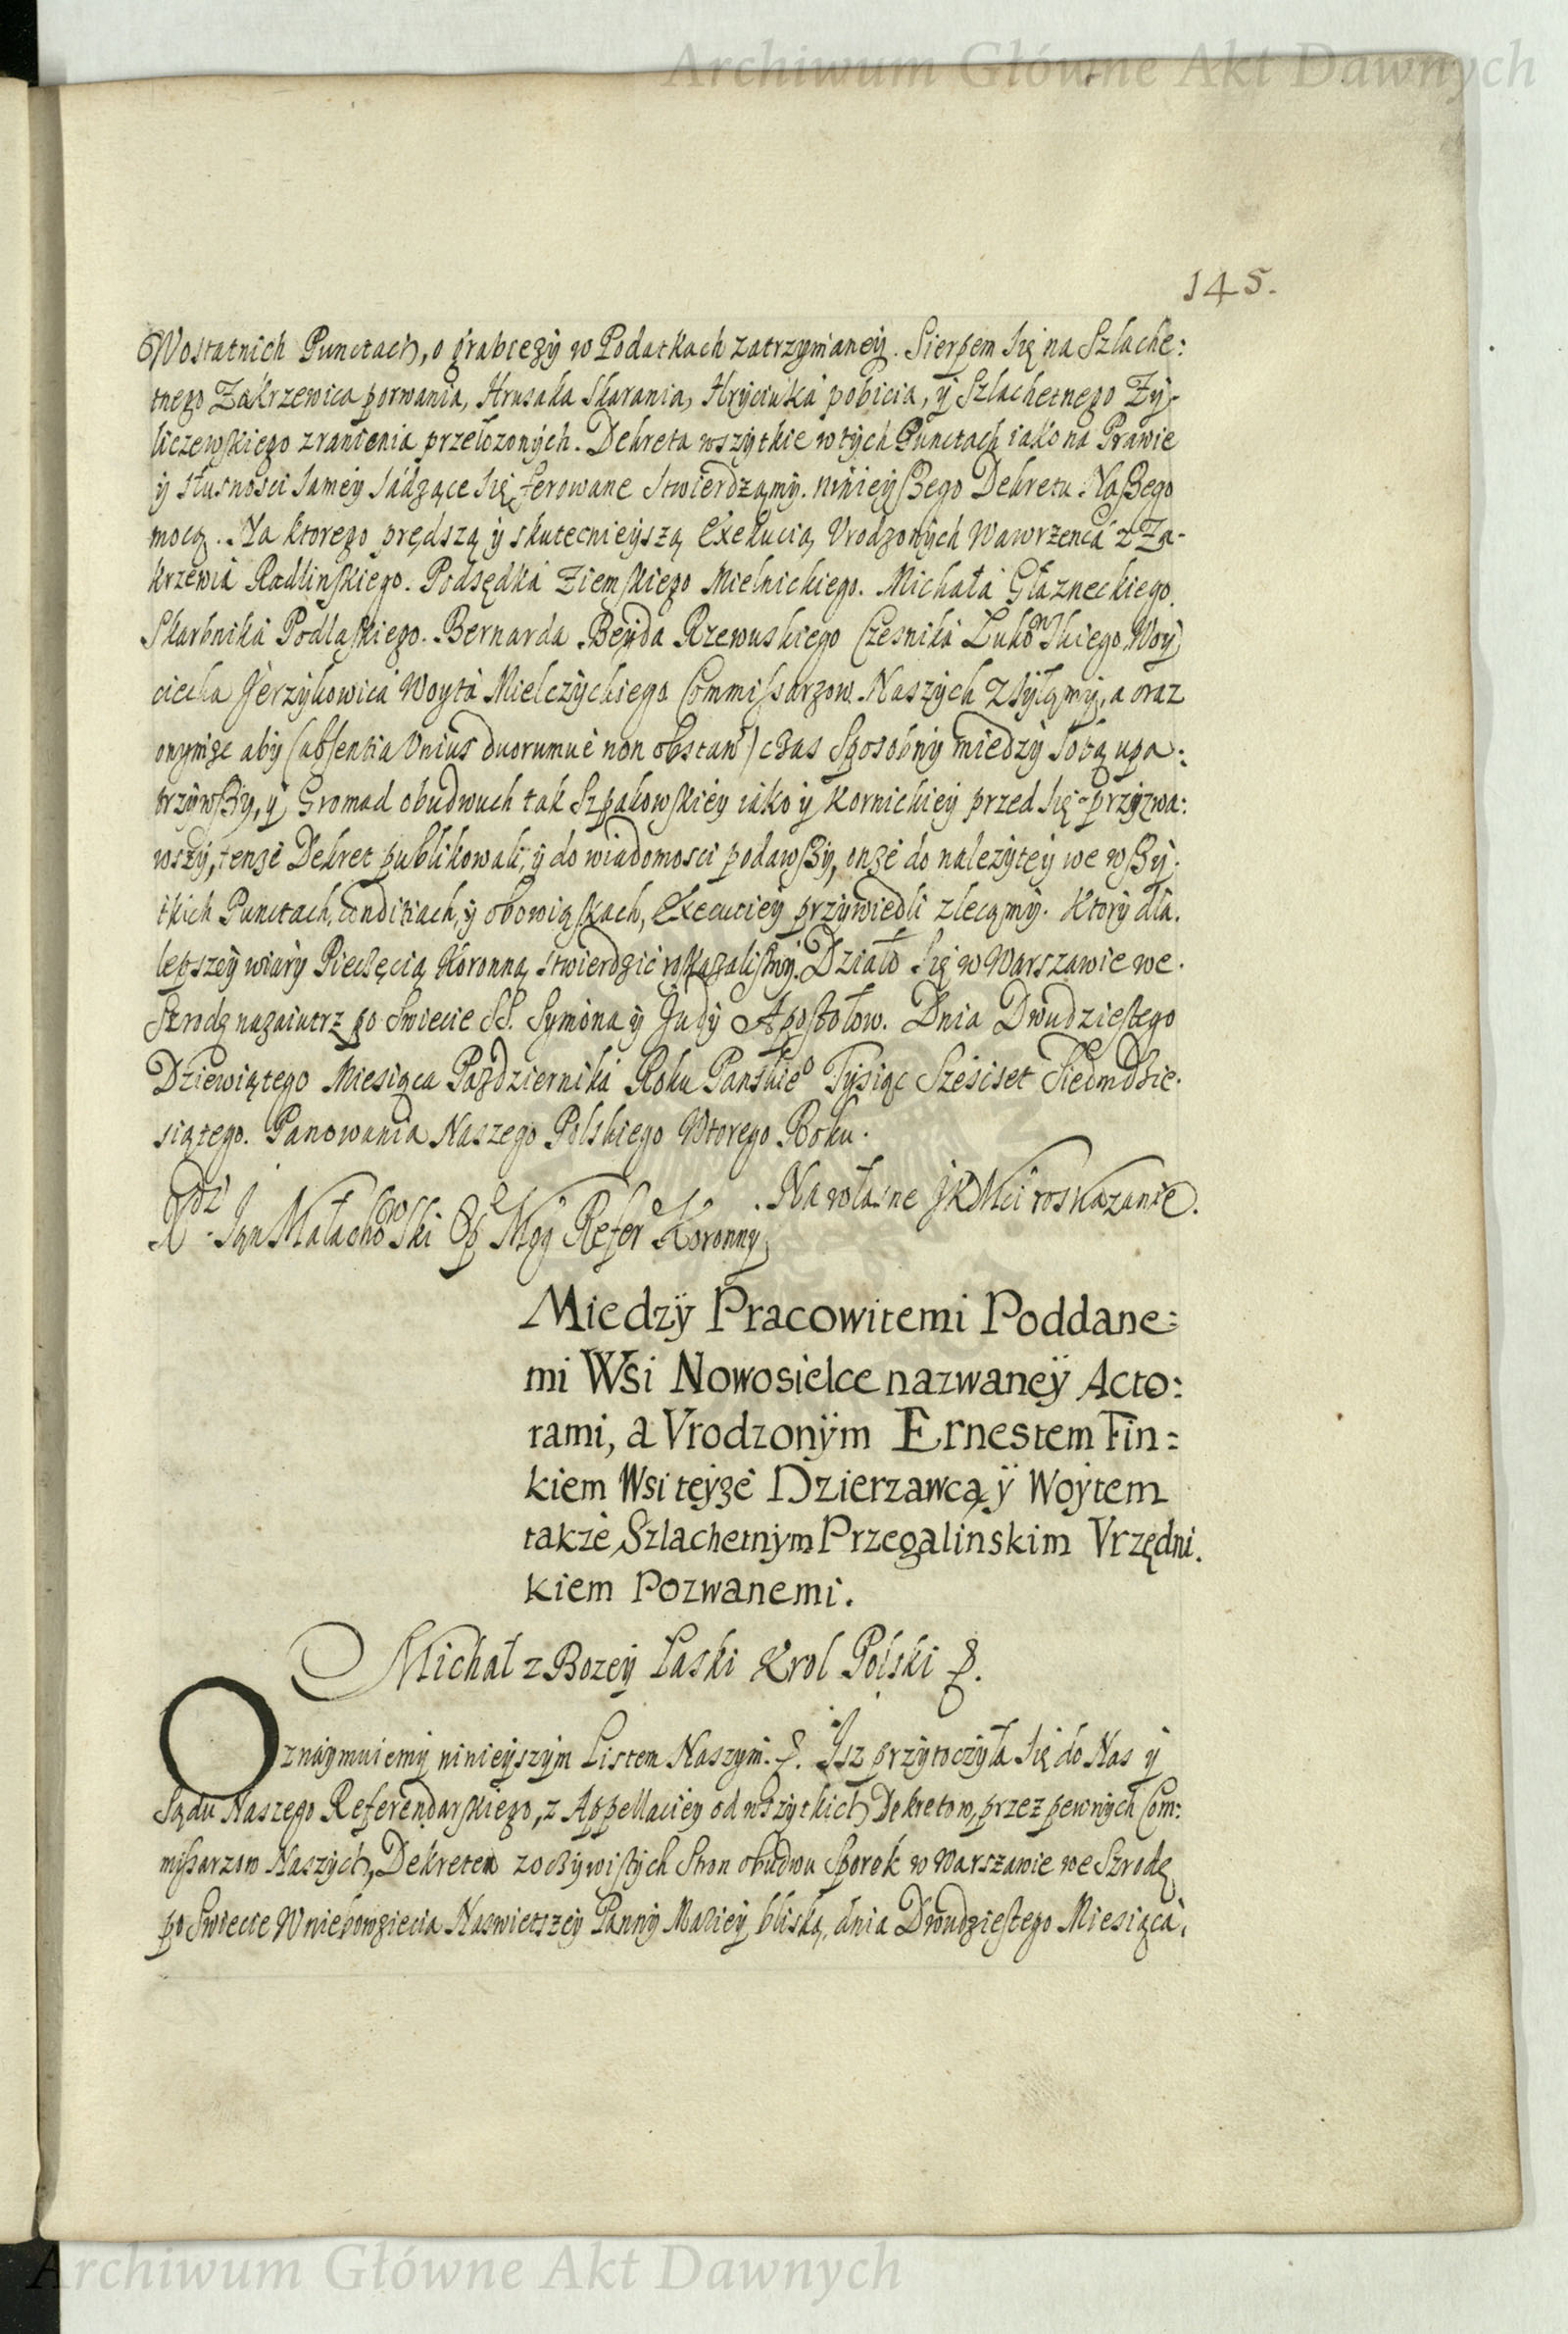 Archiwum Główne Akt Dawnych
145.
Wostatnich Punctach, o grabieży w Podatkach zatrzymaney. Sierpem się na Szlache:
tnego Zakrzewica porwania, Hrusaka skarania, Hryciuka pobicia, ÿ Szlachetnego Zÿ-
liczewskiego zranienia przełozonÿch. Dekreta wszÿtkie w tÿch Punctach iako na Prawie
ÿ słusnosci samey sádzące się ferowane stwierdzamy. ninieyszego Dekretu Naszego
mocą. Na ktorego prędszą ÿ skutecnieÿszą Exekucią Vrodzonÿch Wawrzenca z Za-
krzewia Radlinskiego. Podsędka Ziemskiego Mielnickiego. Michała Głazneckiego
Skarbnika Podlaskiego. Bernarda Beyda Rzewuskiego Czesnika Łukowskiego Woÿ
ciecha Jerzykowica Woyta Mielczÿckiego Commissarzow Naszÿch zsyłamÿ, a oraz
onymze aby (absentia Vnius duorumue non obstan) czas sposobny miedzÿ sobą upa:
trzÿwszÿ, ÿ Gromad obudwuch tak Szpakowskiey iako ÿ Kornickieÿ przed się przyzwa:
wszÿ, tenze Dekret publikowali, ÿ do wiadomosci podawszÿ, onze do nalezyteÿ we wszÿ-
tkich Punctach, conditiach, ÿ obowiąskach, Executieÿ przÿwiedli zlecamÿ. Ktorÿ dla
lepszeÿ wiarÿ Pieczęcią Koronną stwierdzić roskazalismÿ. Działo się w Warszawie we
Szrodę nazaiutrz po Swiecie SS. Symona ÿ Judÿ Apostołow. Dnia Dwudziestego
Dziewiątego Miesiąca Pazdziernika Roku Panskieo Tysiąc Szescset Siedmdzie-
siątego. Panowania Naszego Polskiego Wtorego Roku.
Na własne JKMci roskazanie.
Jan Małachowski Refer Koronny
Miedzÿ Pracowitemi Poddane:
mi Wsi Nowosielce nazwaneÿ Acto:
rami, a Vrodzonÿm Ernestem Fin:
kiem Wsi teÿze Dzierzawcą ÿ Woÿtem
takze Szlachetnÿm Przegalinskim Vrzędni.
kiem Pozwanemi.
Michał z Bozeÿ Łaski Krol Polski
Oznaÿmuiemÿ ninieÿszÿm Listem Naszÿm. Isz przÿtoczÿła się do Nas ÿ
Sądu Naszego Referendarskiego, z Appellacieÿ od wszÿtkich Dekretow, przez pewnÿch Com:
missarzow Naszÿch, Dekretem zoczÿwistÿch Stron obudwu Sporek w Warszawie we Szrodę
po Swiecie Wniebowziecia Naswietszeÿ Pannÿ Marieÿ bliską, dnia Dwudziestego Miesiąca
Archiwum Główne Akt Dawnych